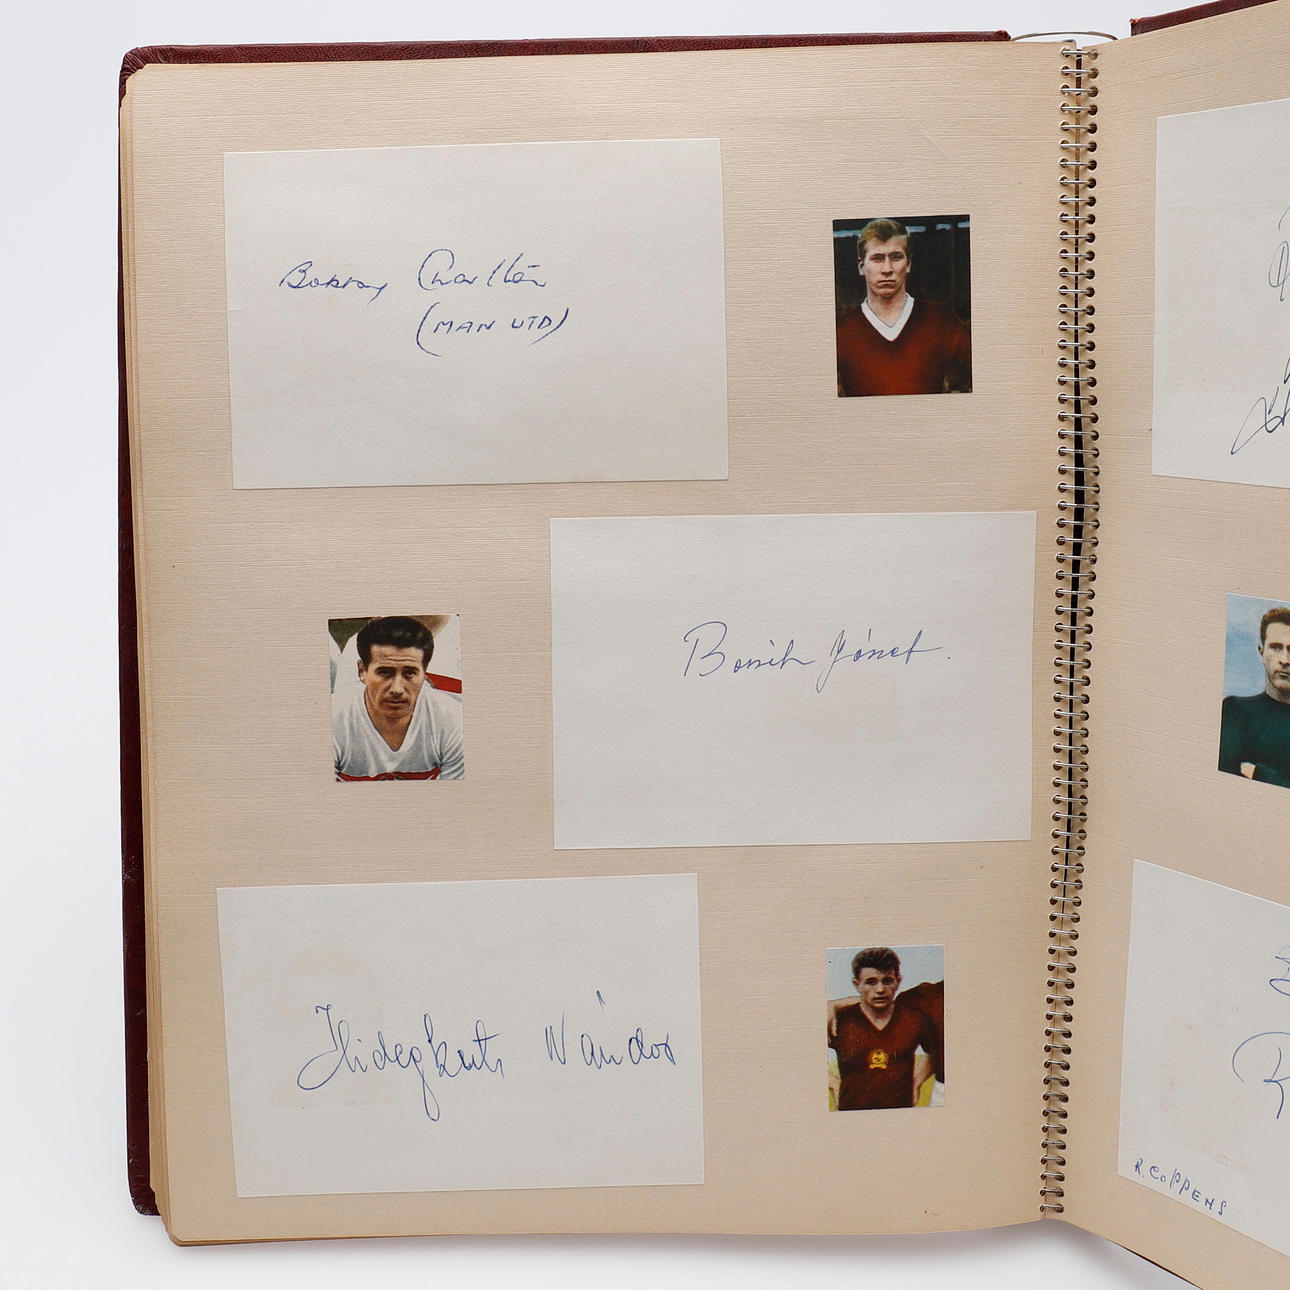 Bobby Charlton
(MAN UTD)
Bozsik József.
Hidegkuti Nándor
R. COPPENS